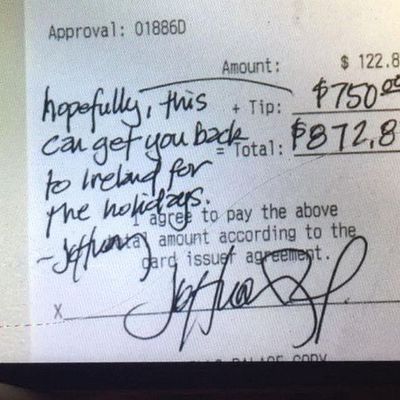 Approval: 01886D
Amount: $ 122.8
+ Tip: $750.00
= Total: $872.8
hopefully, this
can get you back
to Ireland for
the holidays.
- Jeffrey
I agree to pay the above
total amount according to the
card issuer agreement.
X
COPY